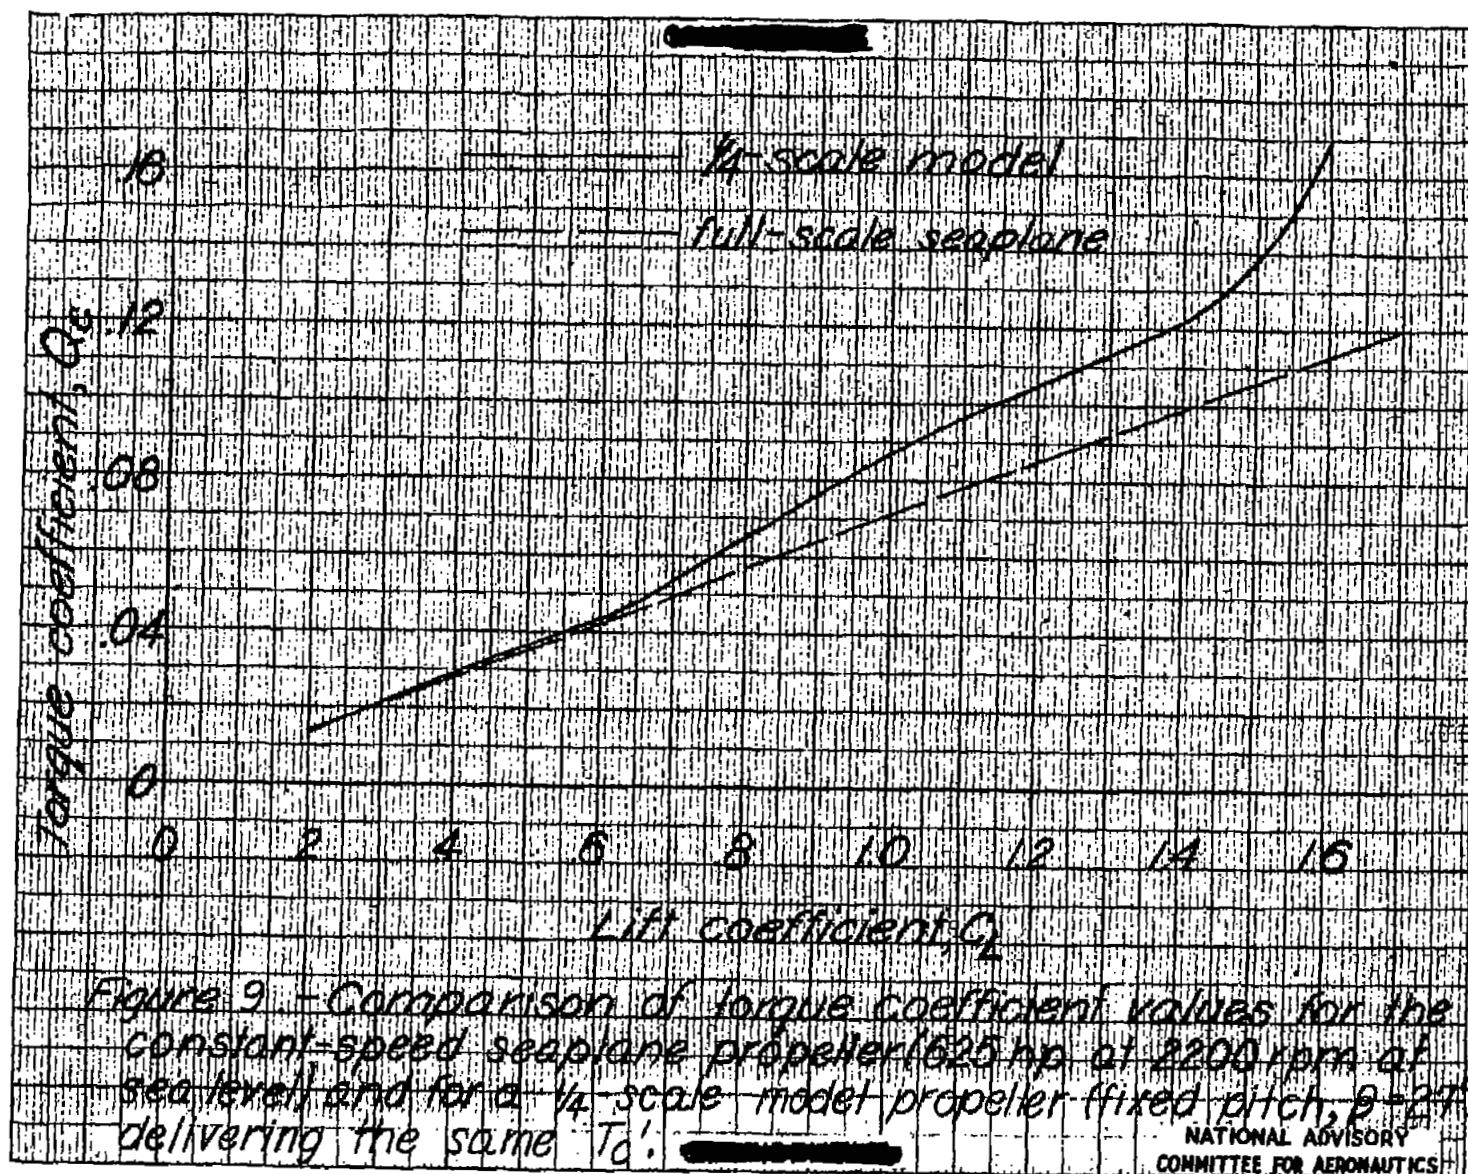 1/4-scale model
.16
full-scale seaplane
.12
Torque coefficient, Qc
.08
.04
0
0 .2 .4 .6 .8 1.0 1.2 1.4 1.6
Lift coefficient, CL
Figure 9.-Comparison of torque coefficient values for the
constant-speed seaplane propeller (625 hp at 2200 rpm at
sea level) and for a 1/4-scale model propeller (fixed pitch, β=27°)
delivering the same Tc'.
NATIONAL ADVISORY
COMMITTEE FOR AERONAUTICS